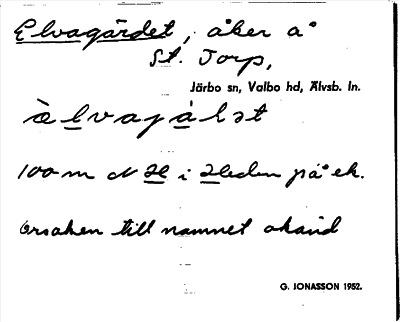 Elvagärdet, åker å
St. Torp,
Järbo sn, Valbo hd, Älvsb. ln.
100 m N 
i 
leden på ek.
Orsaken till namnet okänd
G. JONASSON 1952.